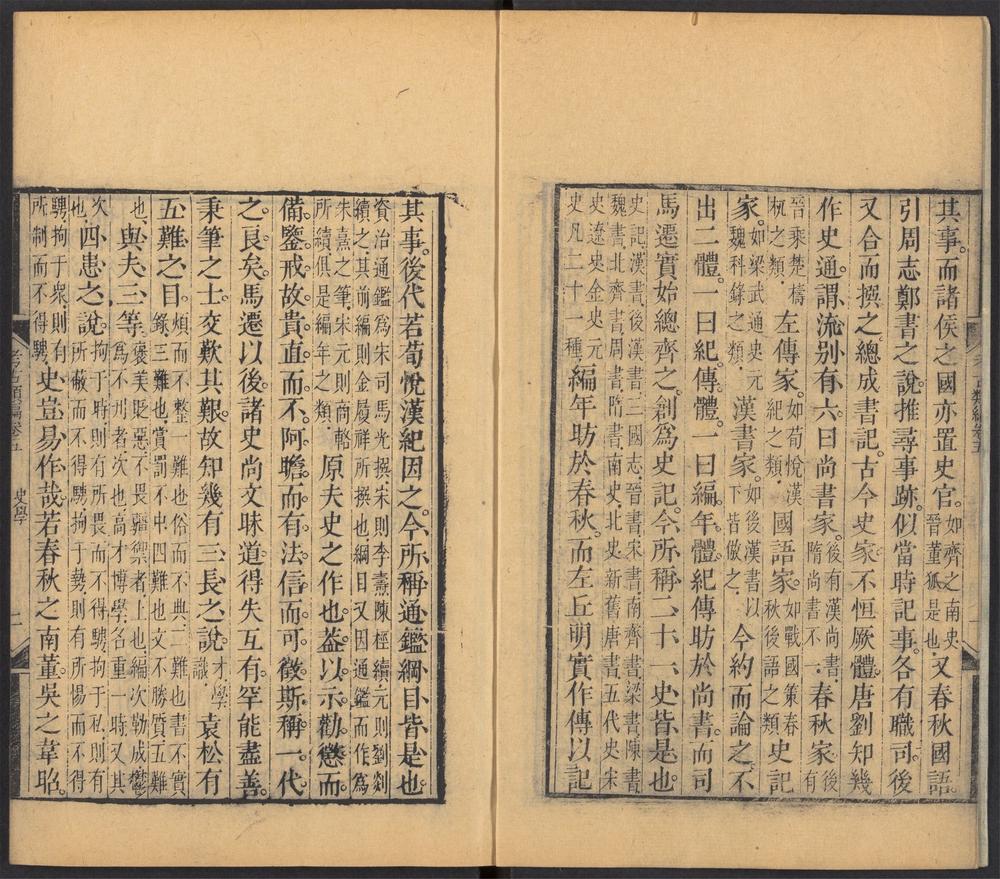 其事。而諸侯之國亦置史官。如齊之南史晉董狐是也又春秋國語。
引周志鄭書之說。推尋事跡。似當時記事。各有職司。後
又合而撰之。總成書記。古今史家。不恒厥體。唐劉知幾
作史通。謂流別有六。曰尚書家。後有漢尚書隋尚書不一春秋家後有
晉乘楚檮杌之類左傳家。如荀悅漢紀之類國語家。如戰國策春秋後語之類史記
家。如梁武通史元魏科錄之類漢書家。如後漢書以下皆倣之今約而論之。不
出二體。一曰紀傳體。一曰編年體。紀傳昉於尚書。而司
馬遷實始總齊之。創爲史記。今所稱二十一史皆是也
史記漢書後漢書三國志晉書宋書南齊書梁書陳書
魏書北齊書周書隋書南史北史新舊唐書五代史宋
史遼史金史元史凡二十一種編年昉於春秋。而左丘明實作傳以記
其事。後代若荀悅漢紀因之。今所稱通鑑綱目皆是也。
資治通鑑爲宋司馬光撰宋則李燾陳桱續元則劉剡
續之其前編則金履祥所撰也綱目又因通鑑而作爲
朱熹之筆宋元則商輅所續俱是編年之類原夫史之作也。蓋以示勸懲而
備鑒戒。故貴直而不阿。贍而有法。信而可徵。斯稱一代
之良矣。馬遷以後。諸史尚文昧道。得失互有。罕能盡善
秉筆之士。交歎其艱。故知幾有三長之說。才學識袁松有
五難之目。煩而不整一難也俗而不典二難也書不實錄三難也賞罰不中四難也文不勝質五難
也與夫三等。褒美貶惡不畏彊禦者上也編次勒成鬱爲不刋者次也高才博學名重一時又其
次也四患之說。拘于時則有所畏而不得騁拘于私則有所蔽而不得騁拘于勢則有所惕而不得
騁拘于衆則有所制而不得騁史豈易作哉。若春秋之南董。吳之韋昭。
考古類編卷五
史學
二